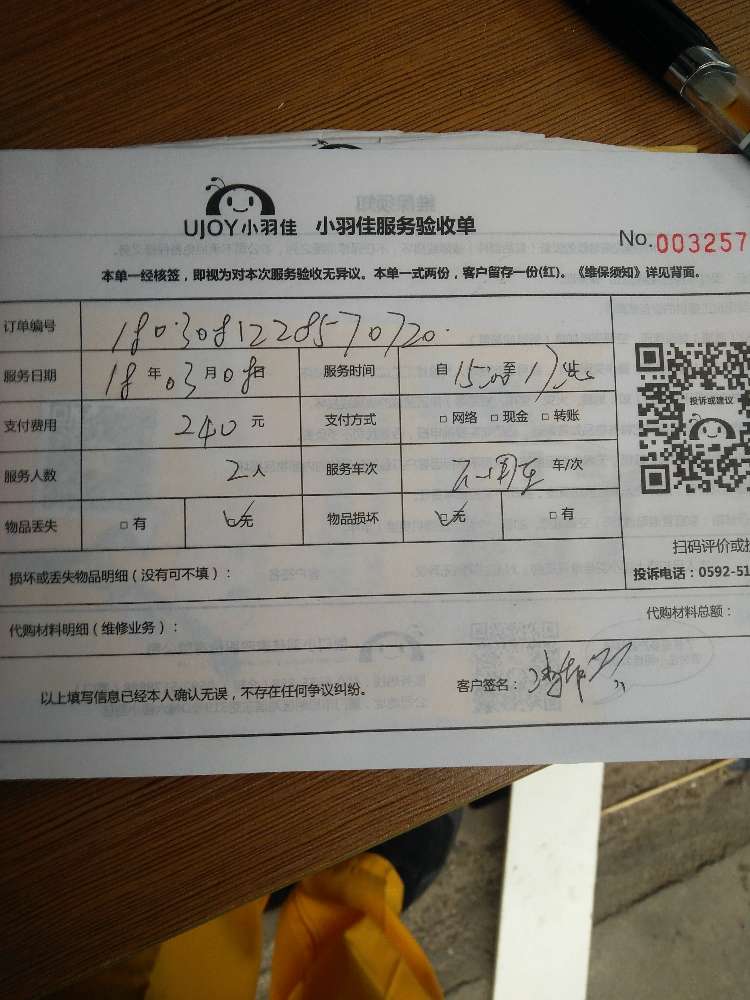 UJOY小羽佳 小羽佳服务验收单
No.003257
本单一经核签，即视为对本次服务验收无异议。本单一式两份，客户留存一份(红)。《维保须知》详见背面。
订单编号 1803081228570720
服务日期 18年03月08日 服务时间 自15:00至17
支付费用 240元 支付方式 □网络 □现金 □转账
服务人数 2人 服务车次 车/次
物品丢失 □有 □无 物品损坏 □无 □有
投诉或建议
扫码评价或投
损坏或丢失物品明细（没有可不填）：
投诉电话：0592-51
代购材料明细（维修业务）： 代购材料总额：
以上填写信息已经本人确认无误，不存在任何争议纠纷。 客户签名：